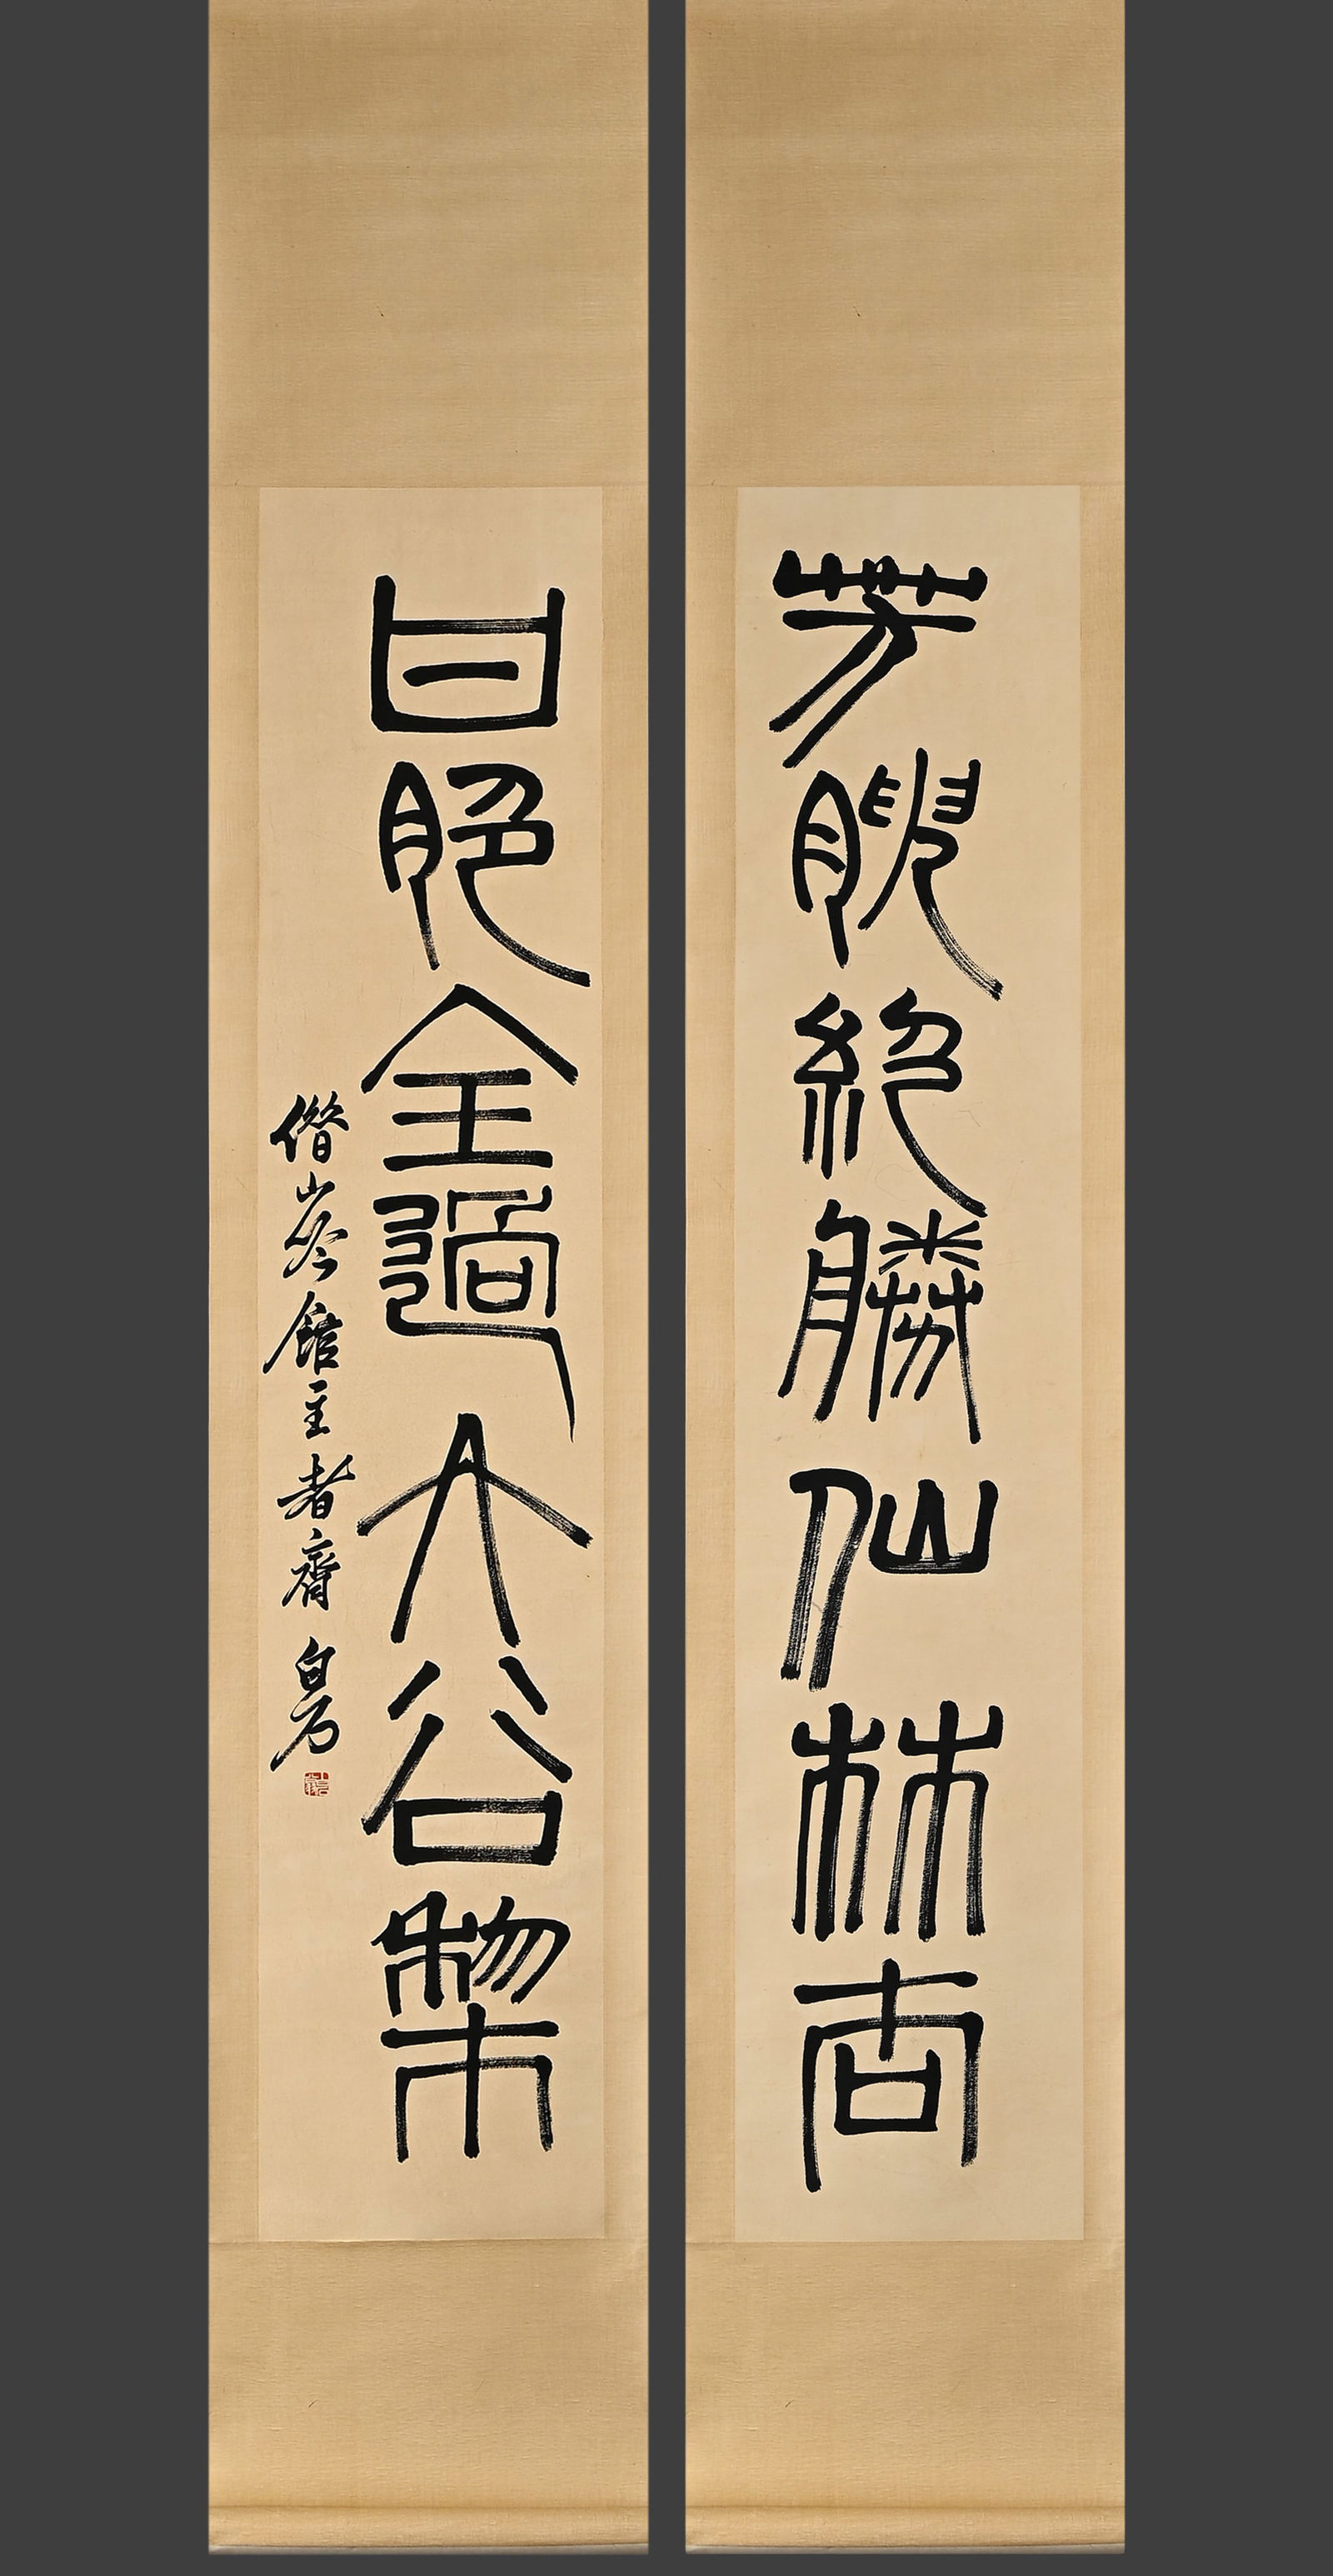 芳腴絕勝仙林杏
甘脆全過大谷棃
借山吟館主者齊白石